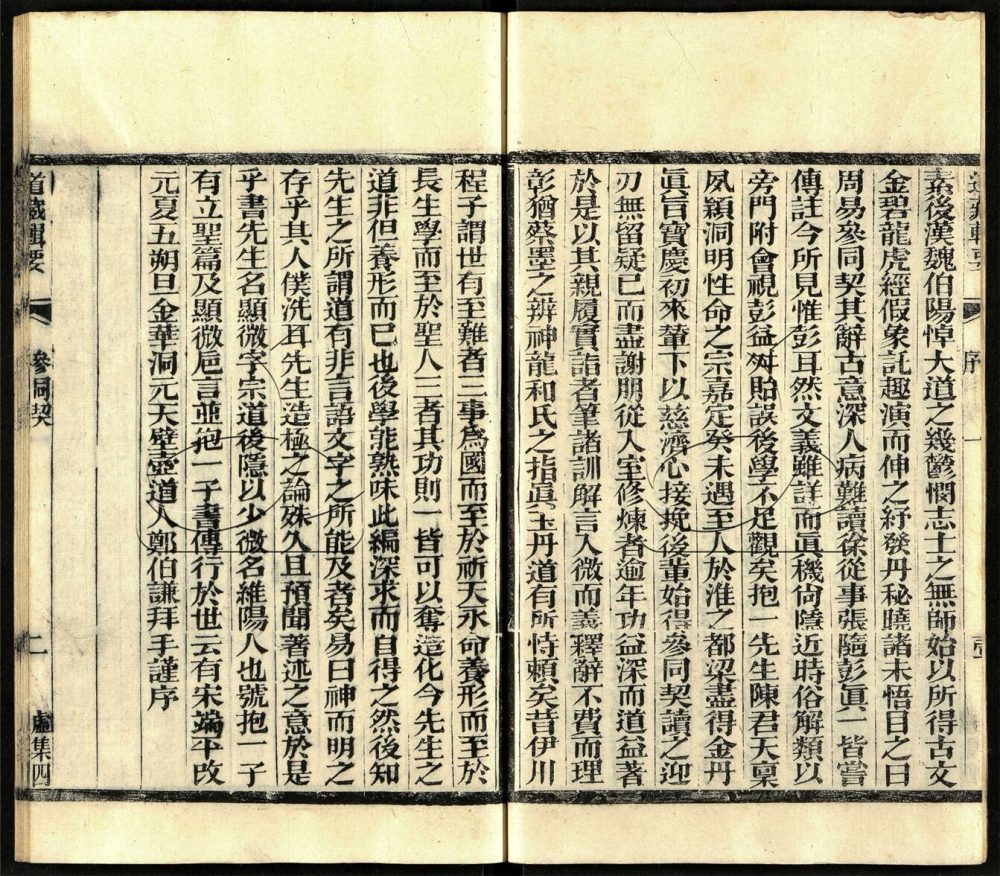 道藏輯要
序
一
壹
素後漢魏伯陽悼大道之幾鬱憫志士之無師始以所得古文
金碧龍虎經假象託趣演而伸之紓發丹秘曉諸未悟目之曰
周易參同契其辭古意深人病難讀徐從事張隨彭眞一皆嘗
傳註今所見惟彭耳然文義雖詳而眞機尙隱近時俗解類以
旁門附會視彭益舛貽誤後學不足觀矣抱一先生陳君天稟
夙穎洞明性命之宗嘉定癸未遇至人於淮之都梁盡得金丹
眞旨寶慶初來輦下以慈濟心接挽後輩始得參同契讀之迎
刃無留疑已而盡謝朋從入室修煉者逾年功益深而道益著
於是以其親履實詣者筆諸訓解言入微而義釋辭不費而理
彰猶蔡墨之辨神龍和氏之指眞玉丹道有所恃賴矣昔伊川
程子謂世有至難者三事爲國而至於祈天永命養形而至於
長生學而至於聖人三者其功則一皆可以奪造化今先生之
道非但養形而已也後學能熟味此編深求而自得之然後知
先生之所謂道有非言語文字之所能及者矣易曰神而明之
存乎其人僕洗耳先生造極之論殊久且預聞著述之意於是
乎書先生名顯微字宗道後隱以少微名維陽人也號抱一子
有立聖篇及顯微卮言並抱一子書傳行於世云有宋端平改
元夏五朔旦金華洞元天壁壺道人鄭伯謙拜手謹序
道藏輯要
參同契
二
虛集四